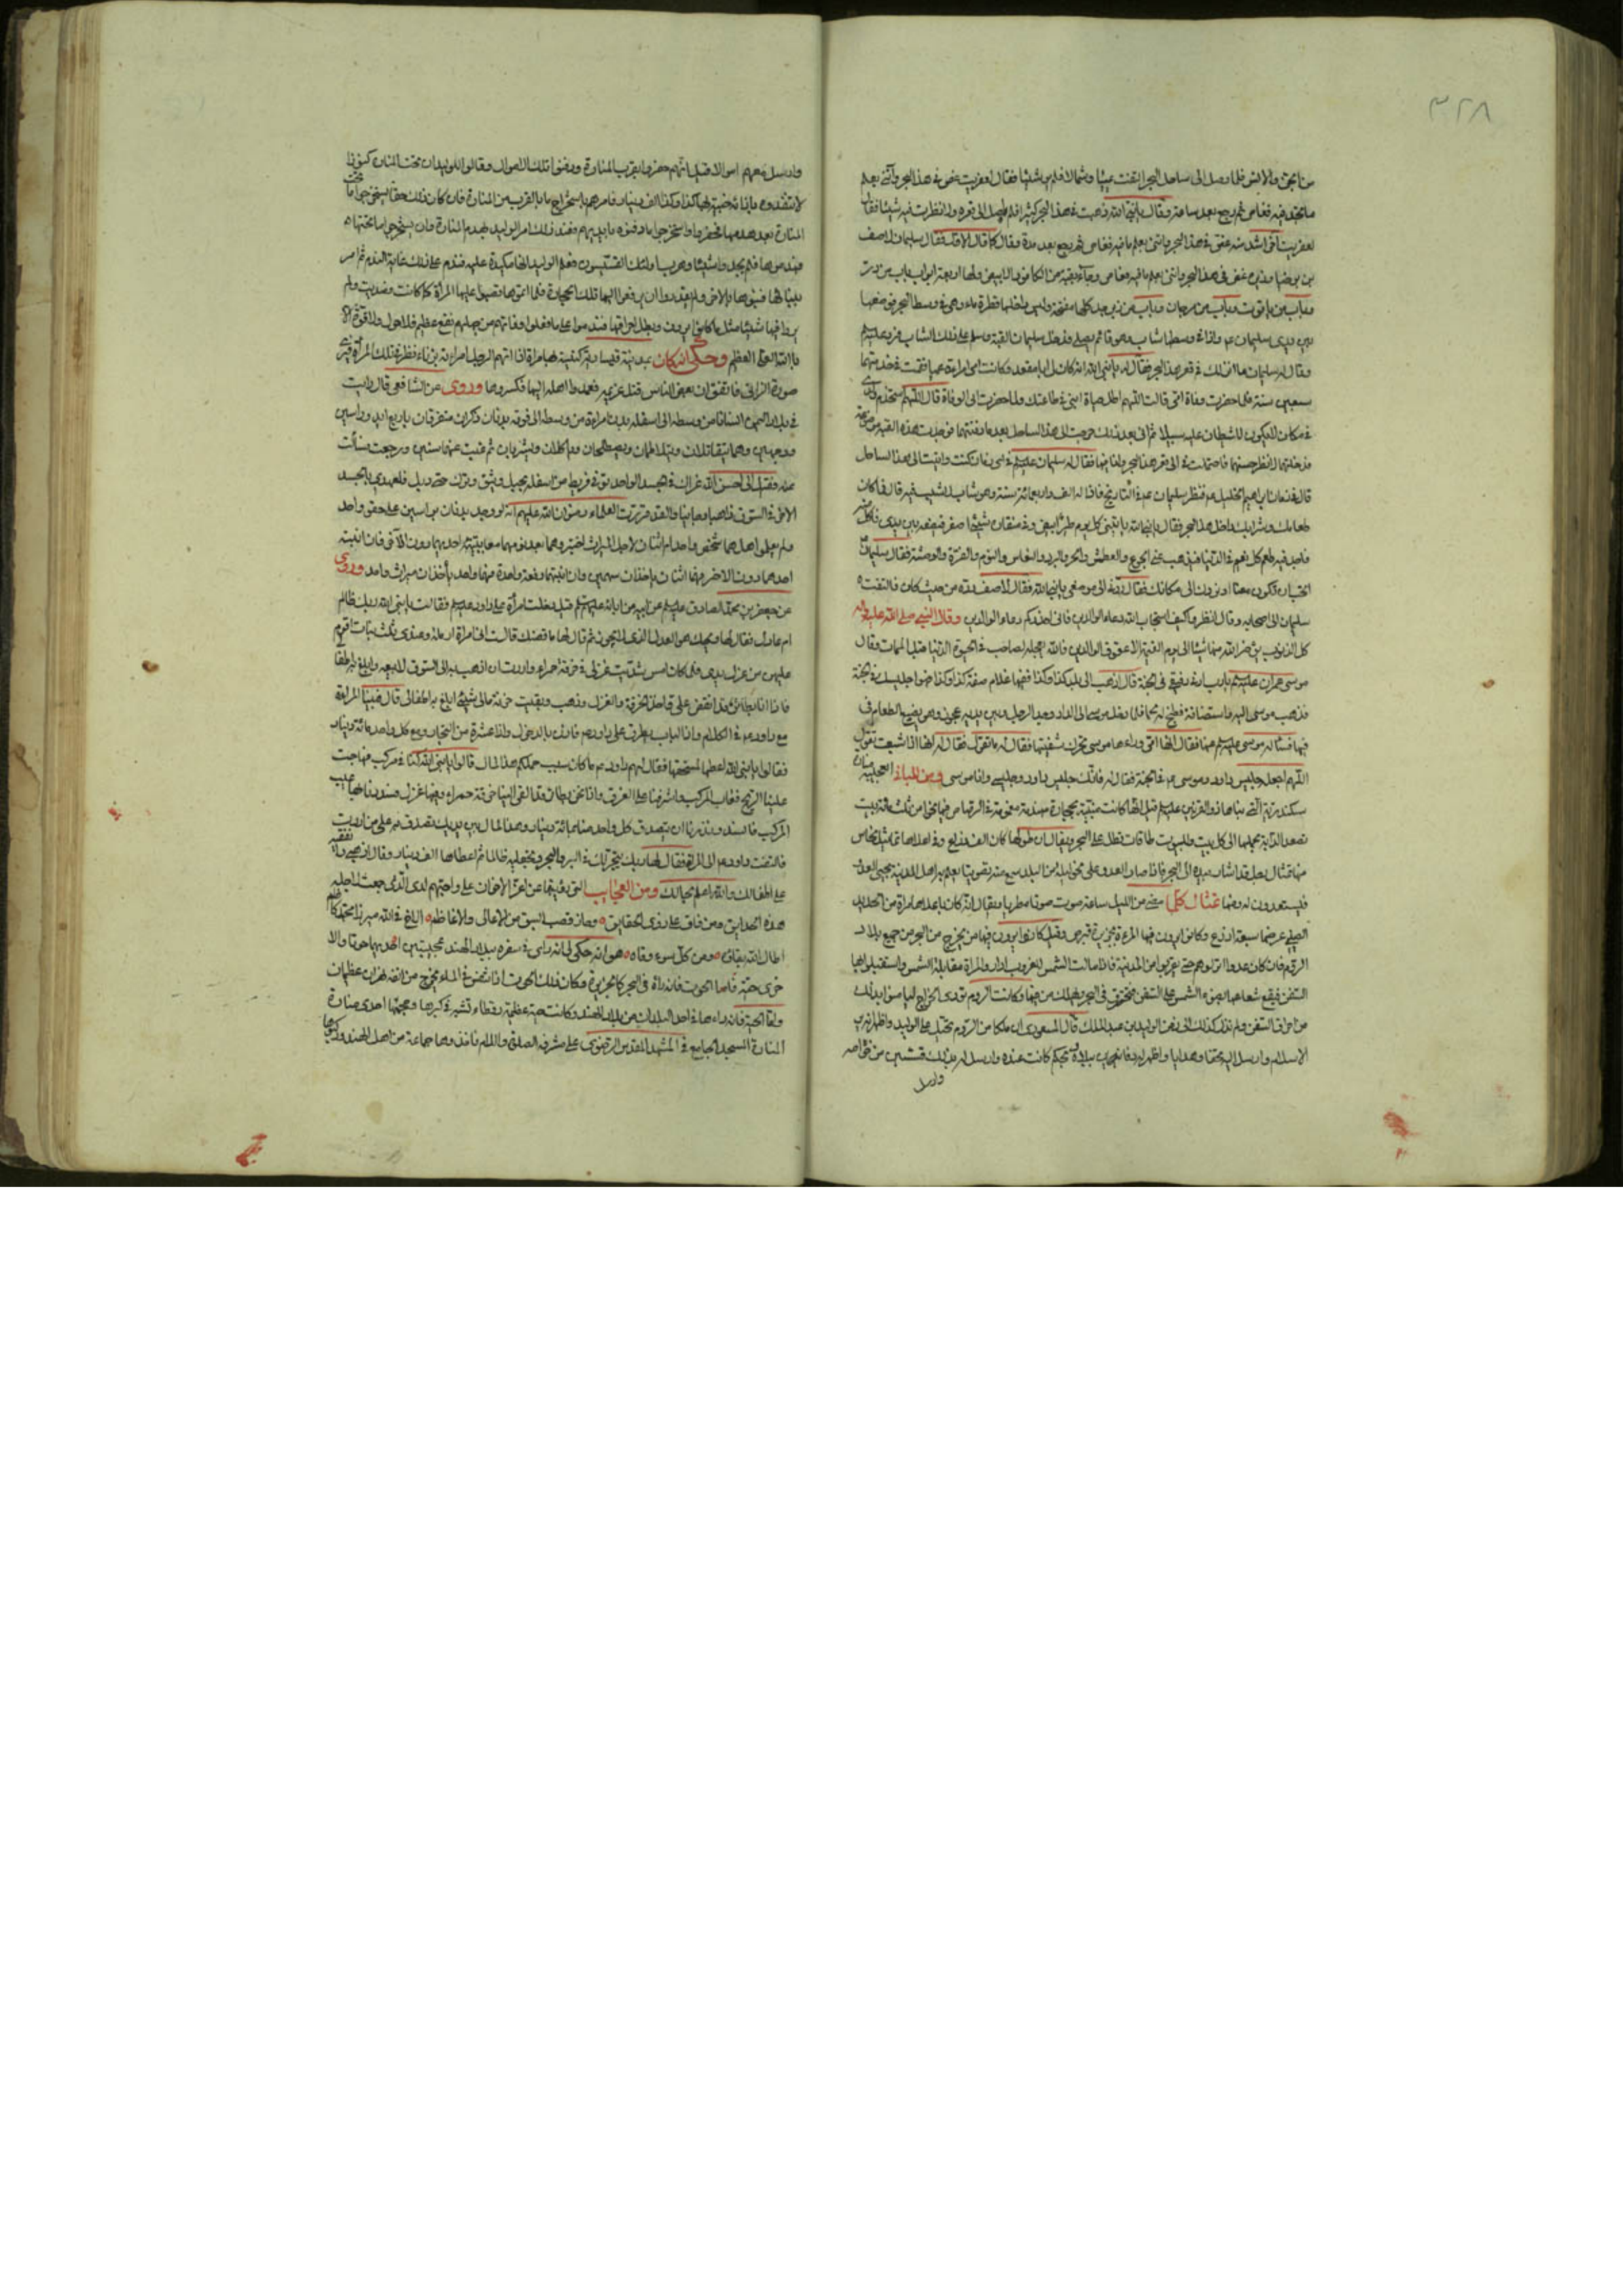 ٣٢٨
من الجن والانس فلما وصل الى ساحل البحر التفت يمينا وشمالا فلم ير شيئا فقال لعفريت غص في هذا البحر وأتني بعلم
ما تجد فيه فغاص ثم رجع بعد ساعة وقال يا نبي الله ذهبت في هذا البحر كثيرا فلم اصل الى قعره ولا نظرت فيه شيئا فقال
لعفريت اخر اشد منه غص في هذا البحر وائتني بعلم ما فيه فغاص ثم رجع بعد مدة وقال كما قال الاول فقال سليمان لاصف
بن برخيا غص في هذا البحر وائتني بعلم ما فيه فغاص وجاء بقبة من الكافور الابيض ولها اربعة ابواب باب من در
وباب من ياقوت وباب من مرجان وباب من زبرجد كلها مفتحة وليس يدخلها قطرة ماء وهي في وسط البحر فوضعها
بين يدي سليمان واذا في وسطها شاب وهو قائم يصلي فدخل سليمان القبة وسلم على ذلك الشاب فرد عليه
وقال له سليمان ما انزلك في قعر هذا البحر فقال له يا نبي الله انه كان لي ابا مقعد وكانت امي امراءة عمياء فقمت في خدمتهما
سبعين سنة فلما حضرت وفاة امي قالت اللهم اطل حياة ابني في طاعتك ولما حضرت ابي الوفاة قال اللهم استخدم ولدي
في مكان لا يكون للشيطان عليه سبيلا ثم اني بعد ذلك خرجت الى هذا الساحل بعد ما دفنتهما فوجدت هذه القبة موضوعة
فدخلتها لانظر حسنها فاحتملت في الى قعر هذا البحر وانا فيها فقال له سليمان في اي زمان كنت واتيت الى هذا الساحل
قال في زمان ابراهيم الخليل فنظر سليمان في التاريخ فاذا له الف واربعمائة سنة وهو شاب لا شيب فيه قال فما كان
طعامك وشرابك داخل هذا البحر فقال يا نبي الله يأتيني كل يوم طير ابيض وفي منقاره شيئا اصفر فيضعه بين يدي فاكله
فاجد فيه طعم كل نعيم في الدنيا فيذهب عني الجوع والعطش والحر والبرد والنعاس والنوم والفترة والوحشة فقال سليمان
اتختار ان تكون معنا او نردك الى مكانك فقال ردني الى موضعي يا نبي الله فقال لاصف رده من حيث كان فالتفت
سليمان الى اصحابه وقال انظروا كيف استجاب الله دعاء الوالدين فاني احذركم دعاء الوالدين وقال النبي صلى الله عليه واله
كل الذنوب يؤخر الله منها شيئا الى يوم القيمة الا عقوق الوالدين فالله يعجله لصاحبه في الحيوة الدنيا قبل الممات وقال
موسى بن عمران يا رب ارني رفيقي في الجنة قال اذهب الى بلد كذا وكذا ففيها غلام صفته كذا وكذا فهو جليسك في الجنة
فذهب موسى اليه فاستضافه فطبخ له لحما فلما دخل موسى الى الدار وجد الرجل وبين يديه عجوز وهو يضع الطعام في
فيها فسئاله موسى عنها فقال انها امي وراءها موسى تحرك شفتيها فقال له ما تقول فقال له انها اذا شبعت تقول
اللهم اجعل جليس ولدي موسى في الجنة فقال له فانك جليس ولدي وانا موسى ومن المباني العجيبة منارة
سكندرية التي بناها ذو القرنين قيل انها كانت مبنية بحجارة مهندمة مغموسة في الرصاص فيها نحو من ثلثمائة بيت
تصعد الدابة بحملها الى كل بيت وللبيوت طاقات تطل على البحر ويقال ان طولها كان الف ذراع وفي اعلاها تماثيل نحاس
منها تمثال رجل قد اشار بيده الى البحر فاذا صار العدو على نحو ليلة من البلد سمع منه تصويتا يعلم به اهل المدينة مجيئ العدو
فيستعدون له ومنها تمثال كلما مضى من الليل ساعة صوت صوتا مطربا ويقال انه كان باعلاها مراة من الحديد
الصيني عرضها سبعة اذرع وكانوا يرون فيها المركب بجزيرة قبرص وقيل كانوا يرون فيها من يخرج من البحر من جميع بلاد
الروم فان كان عدوا تركوهم حتى يقربوا من المدينة فاذا مالت الشمس للغروب اداروا المراة مقابلة الشمس واستقبلوا بها
السفن فيقع شعاعها بضوء الشمس على السفن فتحترق في البحر ويهلك من فيها وكانت الروم تؤدي الخراج ليأمنوا بذلك
من احراق السفن ولم تزل كذلك الى زمن الوليد بن عبد الملك قال المسعودي ان ملكا من الروم تحيل على الوليد واظهر انه يريد
الاسلام وارسل اليه تحفا وهدايا واظهر له دفائن في بلاده بحكم كانت عنده وارسل له بذلك قسيسين من خواصه
وارسل
وارسل معهم اموالا قيل انهم حفروا بقرب المنارة ودفنوا تلك الاموال وقالوا للوليد ان تحت المنارة كنوزا
لا تنفد وبازائه خبية بها كذا وكذا الف دينار فامرهم باستخراج ما بالقرب من المنارة فان كان ذلك حقا يستخرجوا ما تحت
المنارة بعد هدمها فحفروا واستخرجوا ما دفنوه بايديهم فعند ذلك امر الوليد بهدم المنارة وان يستخرجوا ما تحتها
فهدموها فلم يجدوا شيئا وهربوا اولئك القسيسون فعلم الوليد انها مكيدة عليه فندم على ذلك غاية الندم ثم امر
ببنائها فبنوها بالاجر ولم يقدروا ان يرفعوا اليها تلك الحجارة فلما اتموها نصبوا عليها المراة كما كانت وصديت ولم
يروا فيها شيئا مثل ما كانوا يرون وبطل احراقها فندموا على ما فعلوا وفاتهم من جهلهم نفع عظيم فلا حول ولا قوة الا
بالله العلي العظيم وحكي انه كان بمدينة قيسارية كنيسة بها مراة اذا اتهم الرجل امراءته بزناء نظر في تلك المراة فيرى
صورة الزاني فاتفق ان بعض الناس قتل غريمه فعمدوا اهله اليها فكسروها وروى عن الشافعي قال رايت
في بلاد اليمن انسانا من وسطه الى اسفله بدن امراءة ومن وسطه الى فوقه بدنان ذكران متفرقان باربع ايد وراسين
ووجهين وهما يتقاتلان ويتلاطمان ويصطلحان وياكلان ويشربان ثم غبت عنهما سنين ورجعت فسألت
عنه فقيل لي احسن الله عزاك في الجسد الواحد توفي فربط من اسفله بحبل وثيق وترك حتى ذبل فلعهدي بالجسد
الاخر في السوق ذاهبا وجائيا والفقه قررت العلماء رضوان الله عليهم انه لو وجد بدنان براسين على حقو واحد
ولم يعلم اهل هما شخص واحد ام اثنان لاجل الميراث
احدهما دون الاخر فهما اثنان ياخذان سهمين وان انتبها دفعة واحدة فهما واحد يأخذان ميراث واحد وروى
عن جعفر بن محمد الصادق عن ابيه عن ابائه قيل دخلت امرأة على داود فقالت يا نبي الله ربك ظالم
ام عادل فقال لها ويحك هو العدل الذي لا يجور ثم قال لها ما قصتك قالت اني امراة ارملة وعندي ثلث بنات اقوم
عليهن من غزل يدي فلما كان امس شددت غزلي في خرقة حمراء واردت ان اذهب به الى السوق لابيعه وابلغ به اطفالي
فاذا انا بطائر قد انقض علي فاخذ الخرقة والغزل وذهب وبقيت حزينة مالي شيئ ابلغ به اطفالي قال فبينا المراة
مع داود في الكلام واذا الباب يطرق على داود فاذن بالدخول واذا عشرة من التجار ومع كل واحد مائة دينار
فقالوا يا نبي الله اعطها لمستحقها فقال لهم داود ما كان سبب حملكم هذا المال قالوا يا نبي الله كنا في مركب فهاجت
علينا الريح فعاب المركب واشرفنا على الغرق واذا نحن بطائر وقد القى الينا خرقة حمراء وفيها غزل فسددنا به عيب
المركب فانسد ونذرنا ان يتصدق كل واحد منا بمائة دينار وهذا المال بين يديك تصدق به على من اردت
فالتفت داود الى المراة فقال لها ربك يتجر لك في البر والبحر وتجعليه ظالما ثم اعطاها الف دينار وقال انفقيه
على اطفالك والله اعلم بحالك ومن العجايب التي رويتها عن اعز الاخوان علي واحبهم لدي الذي جمعت لاجله
هذه الحدايق ومن فاق على ذوي الحقايق وحاز قصب السبق من الاعالي
اطال الله بقاه ومن كل سوء وقاه هو انه حكى لي انه رأى في سفره ببلاد الهند عجيبتين احديهما حوتا والا
خرى حية فاما الحوت فانه رآه في البحر كالجزيرة وكان ذلك الحوت اذا تنفس في الماء يخرج من انفه نهران عظيمان
واما الحية فانه راءها في احد البلدان من بلاد الهند وكانت حية عظيمة رقطاء تشبه في كبرها وحجمها احدى منارة
المنارة المسجد الجامع في المشهد المقدس الرضوي على مشرفه الصلوة والسلام فاخذوها جماعة من اهل الهند وركبوها